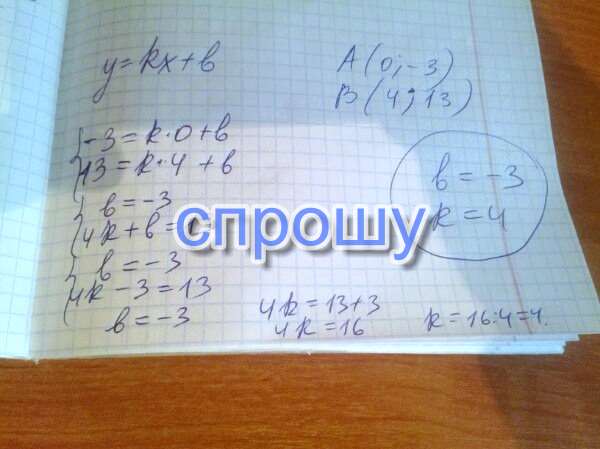 y=kx+b
A(0;-3)
B(4;13)
-3=k·0+b
13=k·4+b
b=-3
4k+b=
b=-3
4k-3=13
b=-3
4k=13+3
4k=16
k=16:4=4.
b=-3
k=4
спрошу